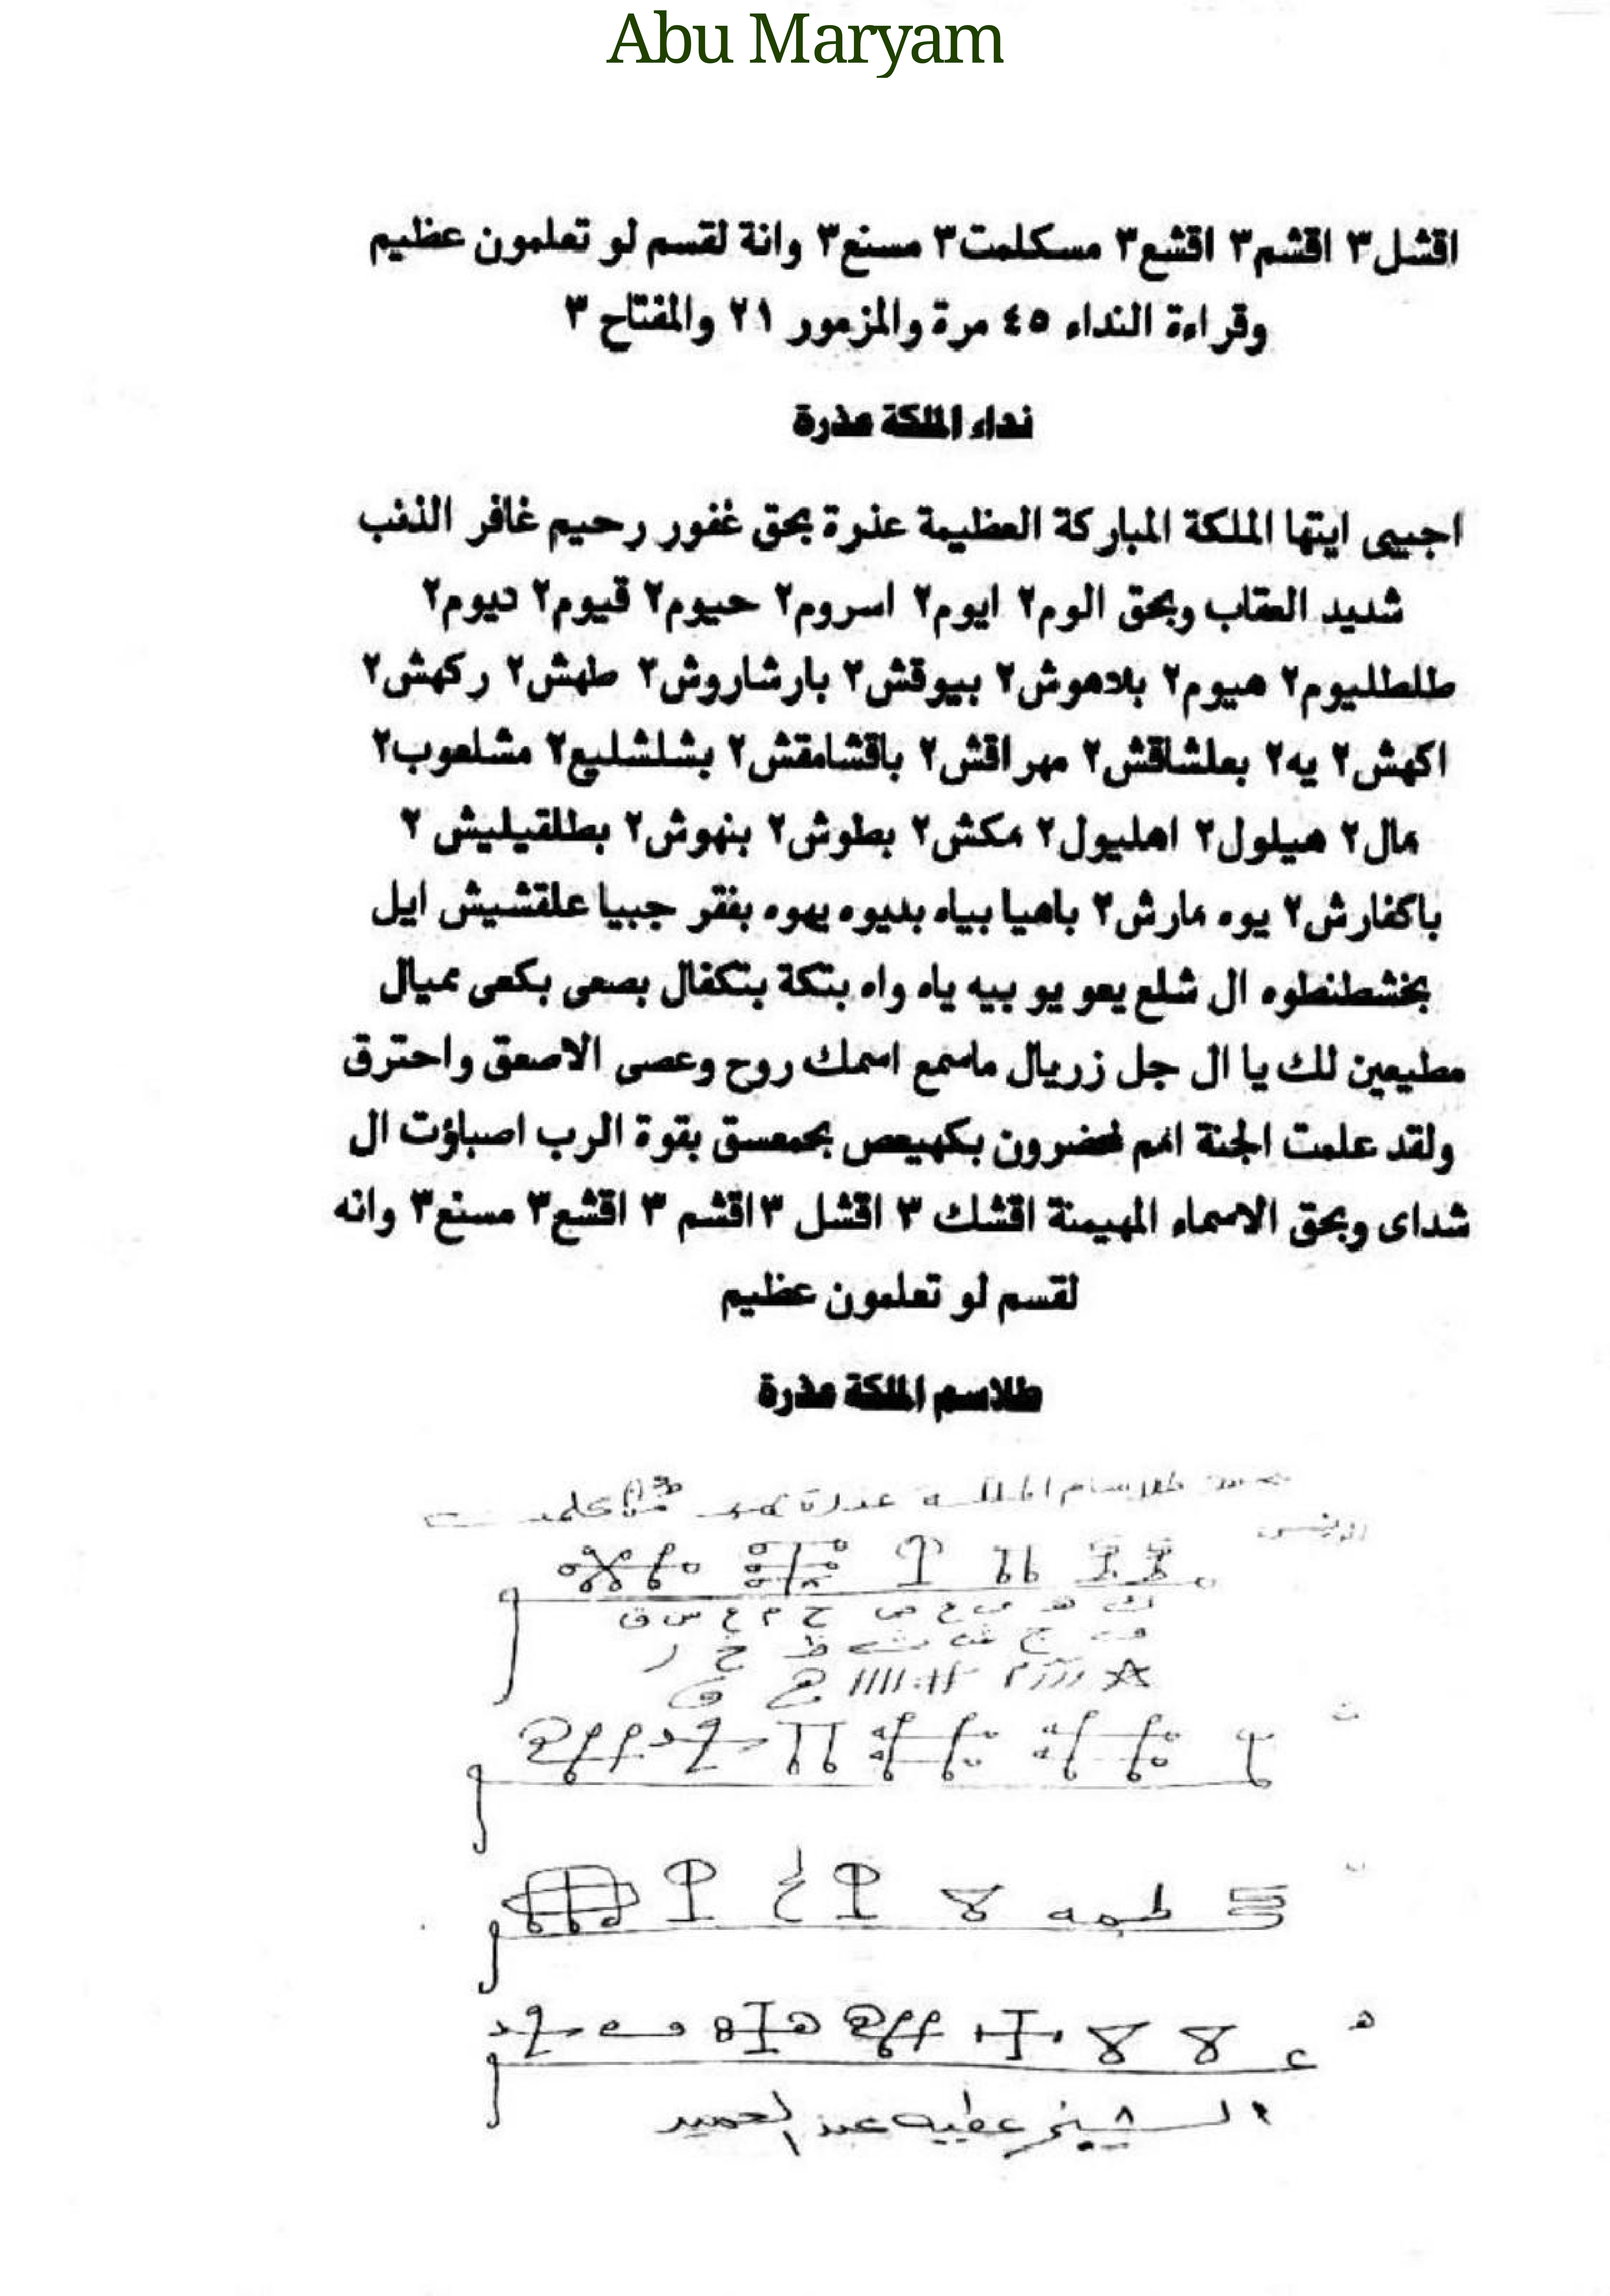 Abu Maryam
اقشل٣ اقشم٣ اقشع٣ مسكلمت٣ مسنع٣ وانة لقسم لو تعلمون عظيم
وقراءة النداء ٤٥ مرة والمزمور ٢١ والمفتاح ٣
نداء الملكة عذرة
اجيبى ايتها الملكة المباركة العظيمة عذرة بحق غفور رحيم غافر الذنب
شديد العقاب وبحق الوم٢ ايوم٢ اسروم٢ حيوم٢ قيوم٢ ديوم٢
طلطليوم٢ هيوم٢ بلاهوش٢ بيوقش٢ بارشاروش٢ طهش٢ ركهش٢
اكهش٢ يه٢ بعلشاقش٢ مهراقش٢ باقشامقش٢ بشلشليع٢ مشلعوب٢
مال٢ هيلول٢ اهليول٢ مكش٢ بطوش٢ بنهوش٢ بطلقيليش ٢
باكفارش٢ يوه مارش٢ باهيا بياه بديوه يهوه بفقر جبيا علقشيش ايل
بخشطنطوه ال شلع يعو يو بيه ياه واه بتكة بتكفال بصعى بكعى مميال
مطيعين لك يا ال جل زريال ماسمع اسمك روح وعصى الاصعق واحترق
ولقد علمت الجنة انهم لمحضرون بكهيعص بحمعسق بقوة الرب اصباؤت ال
شداى وبحق الاسماء المهيمنة اقشك ٣ اقشل ٣ اقشم ٣ اقشع٣ مسنع٣ وانه
لقسم لو تعلمون عظيم
طلاسم الملكة عذرة
ك هـ ى ع ص ح م ع س ق
ف ج ش ث ظ خ ز
الشيخ عطيه عبد الحميد